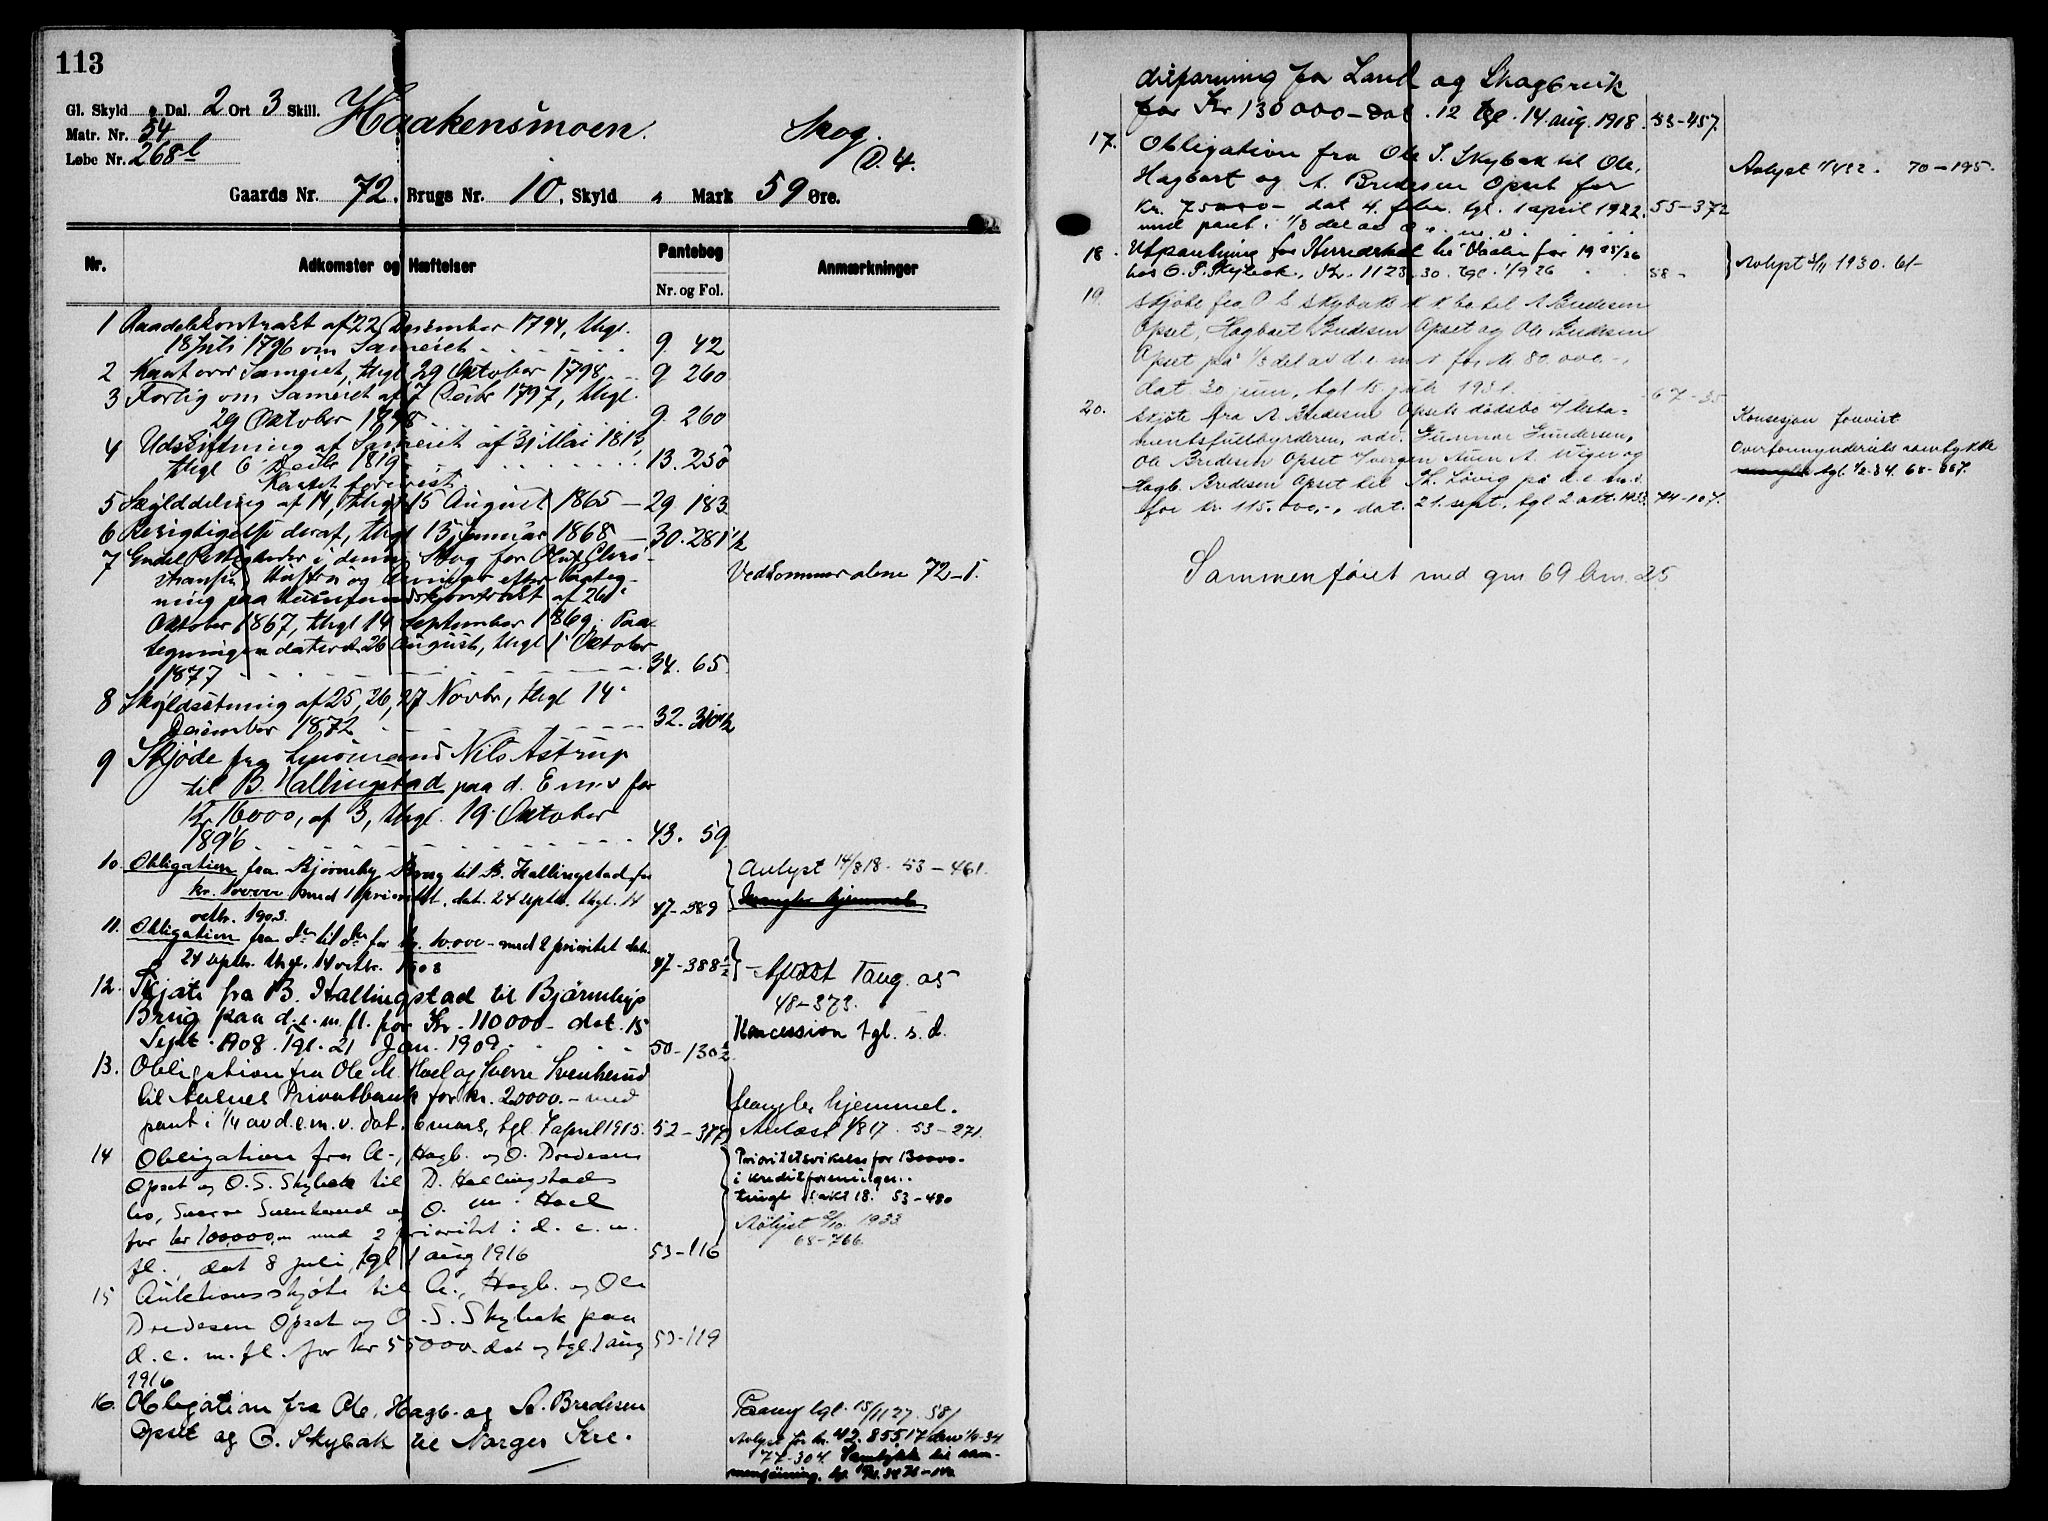 113
Gl. Skyld " Dal. 2 Ort 3 Skill.
Matr. Nr. 54
Løbe Nr. 268 l
Haakensmoen.
Skog.
D. 4.
Gaards Nr. 72, Brugs Nr. 10, Skyld " Mark 59 Øre.
Nr.
Adkomster og Hæftelser
Pantebog
Nr. og Fol.
Anmærkninger
1 Raadelskontrakt af 22 December 1794, thgl.
18 Juli 1796 om Sameiet 9. 42
2 Kart over Sameiet, thgl. 29 Oktober 1798 9 260
3 Forlig om Sameiet af 7 Decbr 1797, thgl.
29 Oktober 1798 9. 260
4 Udskiftning af Sameiet af 31 Mai 1813,
thgl 6 Decbr 1819 13. 250
Kartet forevist.
5 Skylddeling af 14, thgl 15 August 1865 — 29. 183
6 Berigtigelse deraf, thgl 15 Januar 1868 — 30. 281 1/2
7 Endel Rettigheder i denne Skog for Oluf
Hustru og Arvinger efter Paateg-
ning paa Husmandskontrakt af 26
Oktober 1867, thgl 14 September 1869. Paa-
tegningen dateret 26 August, thgl 1 Oktober
1877 34. 65
Vedkommer alene 72-1.
8 Skyldsætning af 25, 26, 27 Novbr, thgl 14
December 1872 32. 310 1/2
9 Skjøde fra Nils Astrup
til B. Hallingstad paa d. E. m. v for
Kr 16000, af 3, thgl. 19 Oktober
1896 43. 59
10. Obligation fra Bjørneby Brug til B. Hallingstad for
kr. 100000 med 1 prioritet, dat. 24 septbr. thgl. 14
octbr. 1903. 47-389
Avlyst 14/8 18. 53-461.
Mangler hjemmel
11. Obligation fra do til do for kr. 10.000 - med 2 prioritet dat.
24 septbr. thgl. 14 octbr. 1903 47-388 1/2
Aflæst Taug. 05
48-373.
12. Skjøte fra B. Hallingstad til Bjørneby
Brug paa d. e. m. fl. for Kr. 110000 - dat. 15
Sept. 1908. Tgl. 21 Jan. 1909 50-130 1/2
Koncession tgl. s. d.
13. Obligation fra Ole M. Hoel og Sverre Svenkerud
til Aulnes Privatbank for kr. 20000. - med
pant i 1/4 av d. e. m. v. dat. 6 mars, tgl. 7 april 1915. 52-377
Mangler hjemmel.
Avlæst 1/8 17. 53-271.
14 Obligation fra A., Hagb. og O. Bredesen
Opset og O. S. Skybak til B. Hallingstads
bo, Sverre Svenkerud og O. M. Hoel
for kr 100,000,00 med 2 prioritet i d. e. m.
fl. dat 8 juli, tgl 1 aug 1916 53-116
Prioritetsvikelse for 130000.-
i kreditforeningen.
tingl. 1 okt 18. 53-480
Avlyst 2/10 1933
68-766
15 Auktionsskjøte til A., Hagb. og Ole
Bredesen Opset og O. S. Skybak paa
d. e. m. fl. for kr 55000. dat og tgl. 1 aug 53-119
1916
16. Obligation fra Ole, Hagb. og A. Bredesen
Opset og O. Skybak til Norges Kre-
Paateg tgl. 15/11 27. 58/
Avlyst for kr. 42.855,17 den 1/6-34
77-304. Samtykke til sam-
menføining
ditforening for Land og Skogbruk
for Kr 130000 - dat. 12 tgl. 14. aug. 1918. 53-457.
17. Obligation fra Ole S. Skybak til Ole,
Hagbart og A. Bredesen Opset for
Kr. 75000 - dat 4. febr. tgl. 1 april 1922. 55-372
med pant i 1/3 del av d. e. m. v.
Avlyst 1/4 32. 70-195.
18. Utpantning for Herredskat til Vaaler for 1925/26
hos O. S. Skybak, Kr. 1123,30. tgl. 1/9 26 58-
Avlyst 3/11 1930. 61-
19. Skjøte fra O S Skybak til A Bredesen
Opset, Hagbart Bredesen Opset og Ole Bredesen
Opset på 1/3 del av d. e. m. v for kr. 80.000.-,
dat 30 juni, tgl 15 juli 1931. 67-35
20. Skjøte fra A Bredesen Opsets dødsbo v/ testa-
mentsfullbyrderen, adv. Gunnar Gundersen,
Ole Bredesen Opset v/ vergen og
Hagb. Bredesen Opset til Th. Løvig på d. e. m. v.
for kr. 115.000,-, dat. 21. sept., tgl 2 okt. 1933. 74-107.
Konsesjon forevist
Overformynderiets samtykke
mangler tgl. 1/2 34. 68-867.
Sammenføiet med gnr 69 bnr. 25